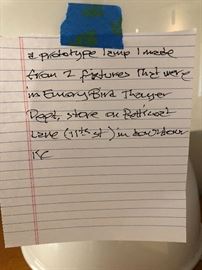 a prototype lamp I made
from 2 fixtures that were
in Emory Bird Thayer
Dept. store on Petticoat
Lane (11th st) in downtown
KC